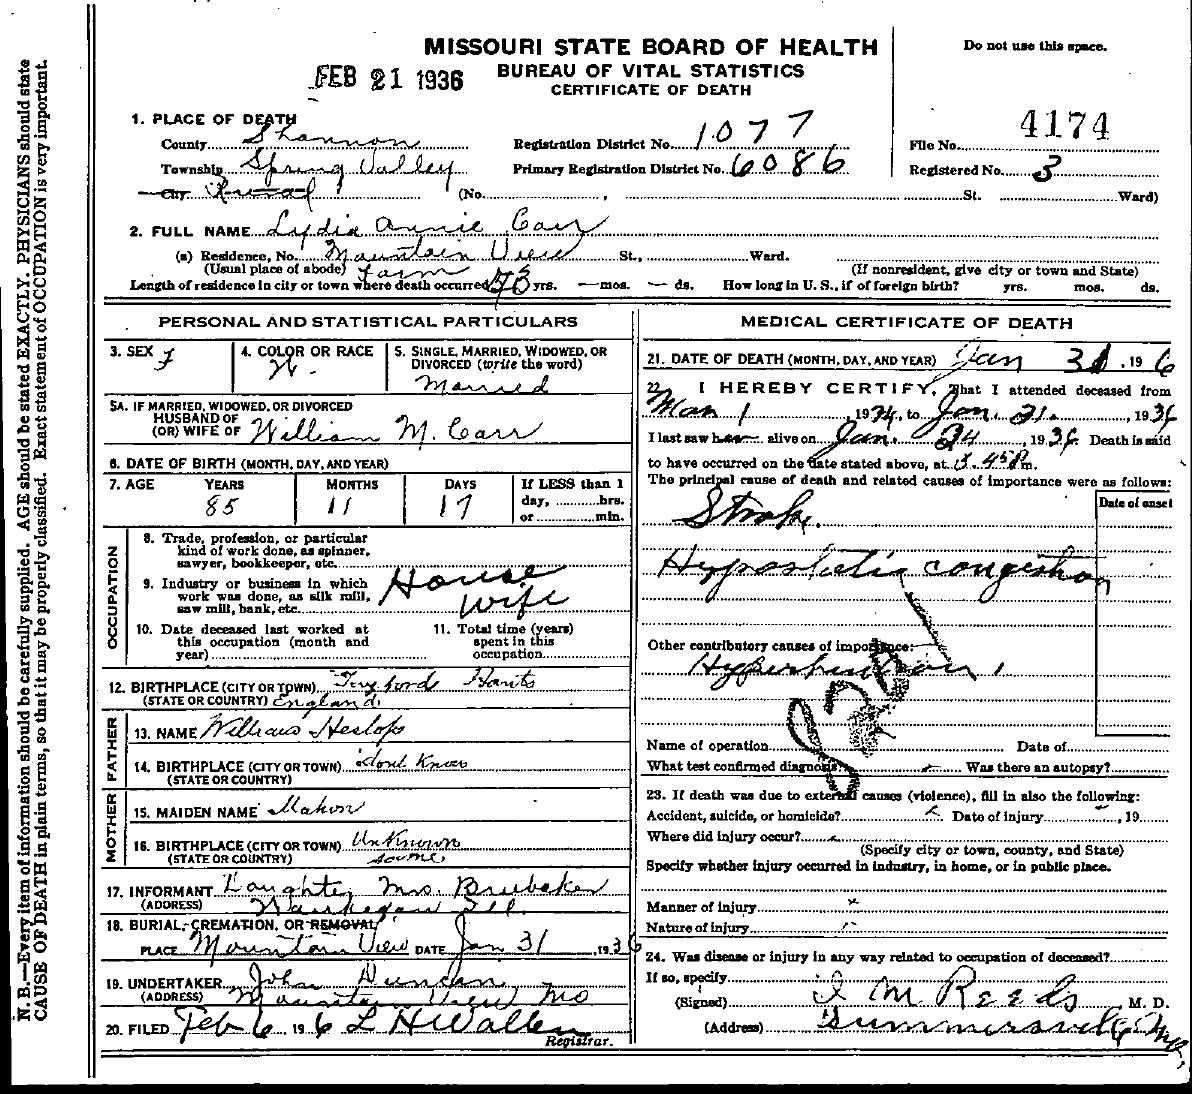 N. B.—Every item of information should be carefully supplied. AGE should be stated EXACTLY. PHYSICIANS should state
CAUSE OF DEATH in plain terms, so that it may be properly classified. Exact statement of OCCUPATION is very important.
MISSOURI STATE BOARD OF HEALTH
BUREAU OF VITAL STATISTICS
CERTIFICATE OF DEATH
FEB 21 1936
Do not use this space.
1. PLACE OF DEATH
County Shannon
Township Spring Valley
City Rural (No. , St. Ward)
Registration District No. 1077
Primary Registration District No. 6086
4174
File No.
Registered No. 3
2. FULL NAME Lydia Annie Carr
(a) Residence, No. Mountain View St., Ward.
(Usual place of abode) Farm (If nonresident, give city or town and State)
Length of residence in city or town where death occurred yrs. — mos. — ds. How long in U. S., if of foreign birth? yrs. mos. ds.
PERSONAL AND STATISTICAL PARTICULARS
3. SEX F
4. COLOR OR RACE W.
5. SINGLE, MARRIED, WIDOWED, OR
DIVORCED (write the word)
Married
5A. IF MARRIED, WIDOWED, OR DIVORCED
HUSBAND OF
(OR) WIFE OF William M. Carr
6. DATE OF BIRTH (MONTH, DAY, AND YEAR)
7. AGE YEARS MONTHS DAYS If LESS than 1
85 11 17 day, hrs.
or min.
OCCUPATION
8. Trade, profession, or particular
kind of work done, as spinner,
sawyer, bookkeeper, etc.
9. Industry or business in which
work was done, as silk mill,
saw mill, bank, etc.
House
Wife
10. Date deceased last worked at
this occupation (month and
year)
11. Total time (years)
spent in this
occupation
12. BIRTHPLACE (CITY OR TOWN) Twyford Hants
(STATE OR COUNTRY) England
FATHER
13. NAME William Heslop
14. BIRTHPLACE (CITY OR TOWN) dont Know
(STATE OR COUNTRY)
MOTHER
15. MAIDEN NAME Mahon
16. BIRTHPLACE (CITY OR TOWN) Unknown
(STATE OR COUNTRY) same
17. INFORMANT Daughter Mrs. Brubaker
(ADDRESS) Waukegan Ill.
18. BURIAL, CREMATION, OR REMOVAL
PLACE Mountain View DATE Jan 31, 1936
19. UNDERTAKER John Duncan
(ADDRESS) Mountain View, Mo
20. FILED Feb 6, 1936 L H Wallen
Registrar.
MEDICAL CERTIFICATE OF DEATH
21. DATE OF DEATH (MONTH, DAY, AND YEAR) Jan 31, 19 6
22. I HEREBY CERTIFY, That I attended deceased from
Mar 1, 1934, to Jan. 31., 1936
I last saw her alive on Jan. 24, 1936 Death is said
to have occurred on the date stated above, at 3.45 P m.
The principal cause of death and related causes of importance were as follows:
Date of onset
Stroke.
Hypostatic congestion
Other contributory causes of importance:
Hypertension
Name of operation Date of
What test confirmed diagnosis? Was there an autopsy?
23. If death was due to external causes (violence), fill in also the following:
Accident, suicide, or homicide? Date of injury , 19
Where did injury occur?
(Specify city or town, county, and State)
Specify whether injury occurred in industry, in home, or in public place.
Manner of injury
Nature of injury
24. Was disease or injury in any way related to occupation of deceased?
If so, specify
(Signed) I M Reeds, M. D.
(Address) Summersville Mo.